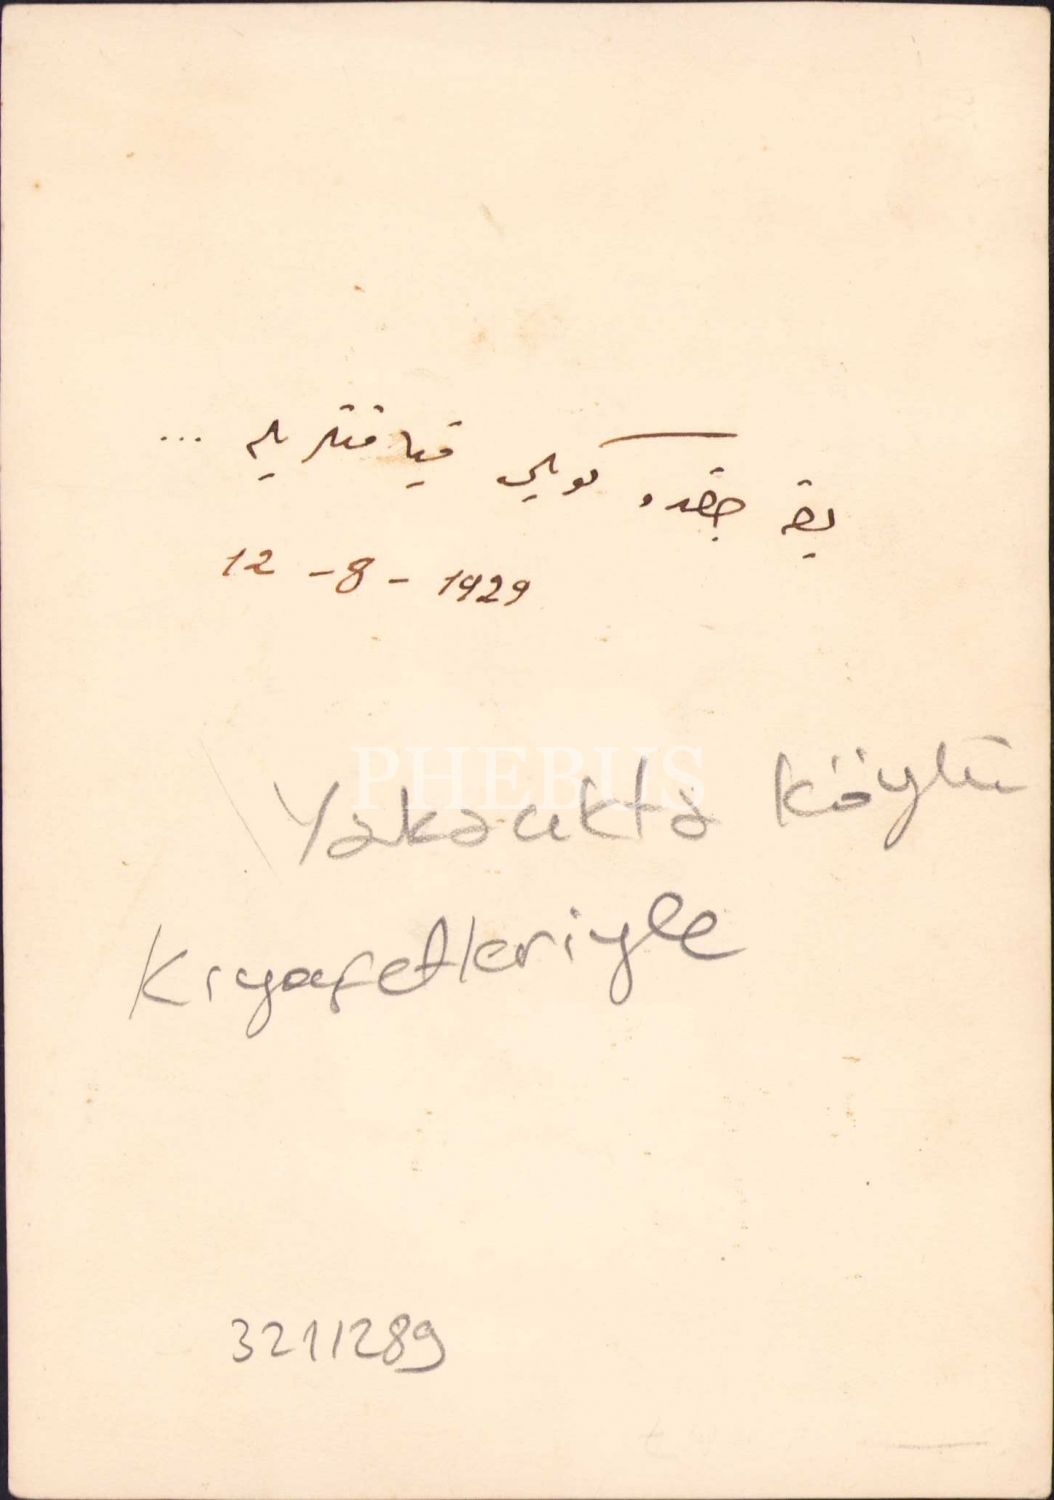 یقه جقده کویلی قیافتلریله ...
12 - 8 - 1929
PHEBUS
Yakacıkta Köylü
Kıyafetleriyle
3211289